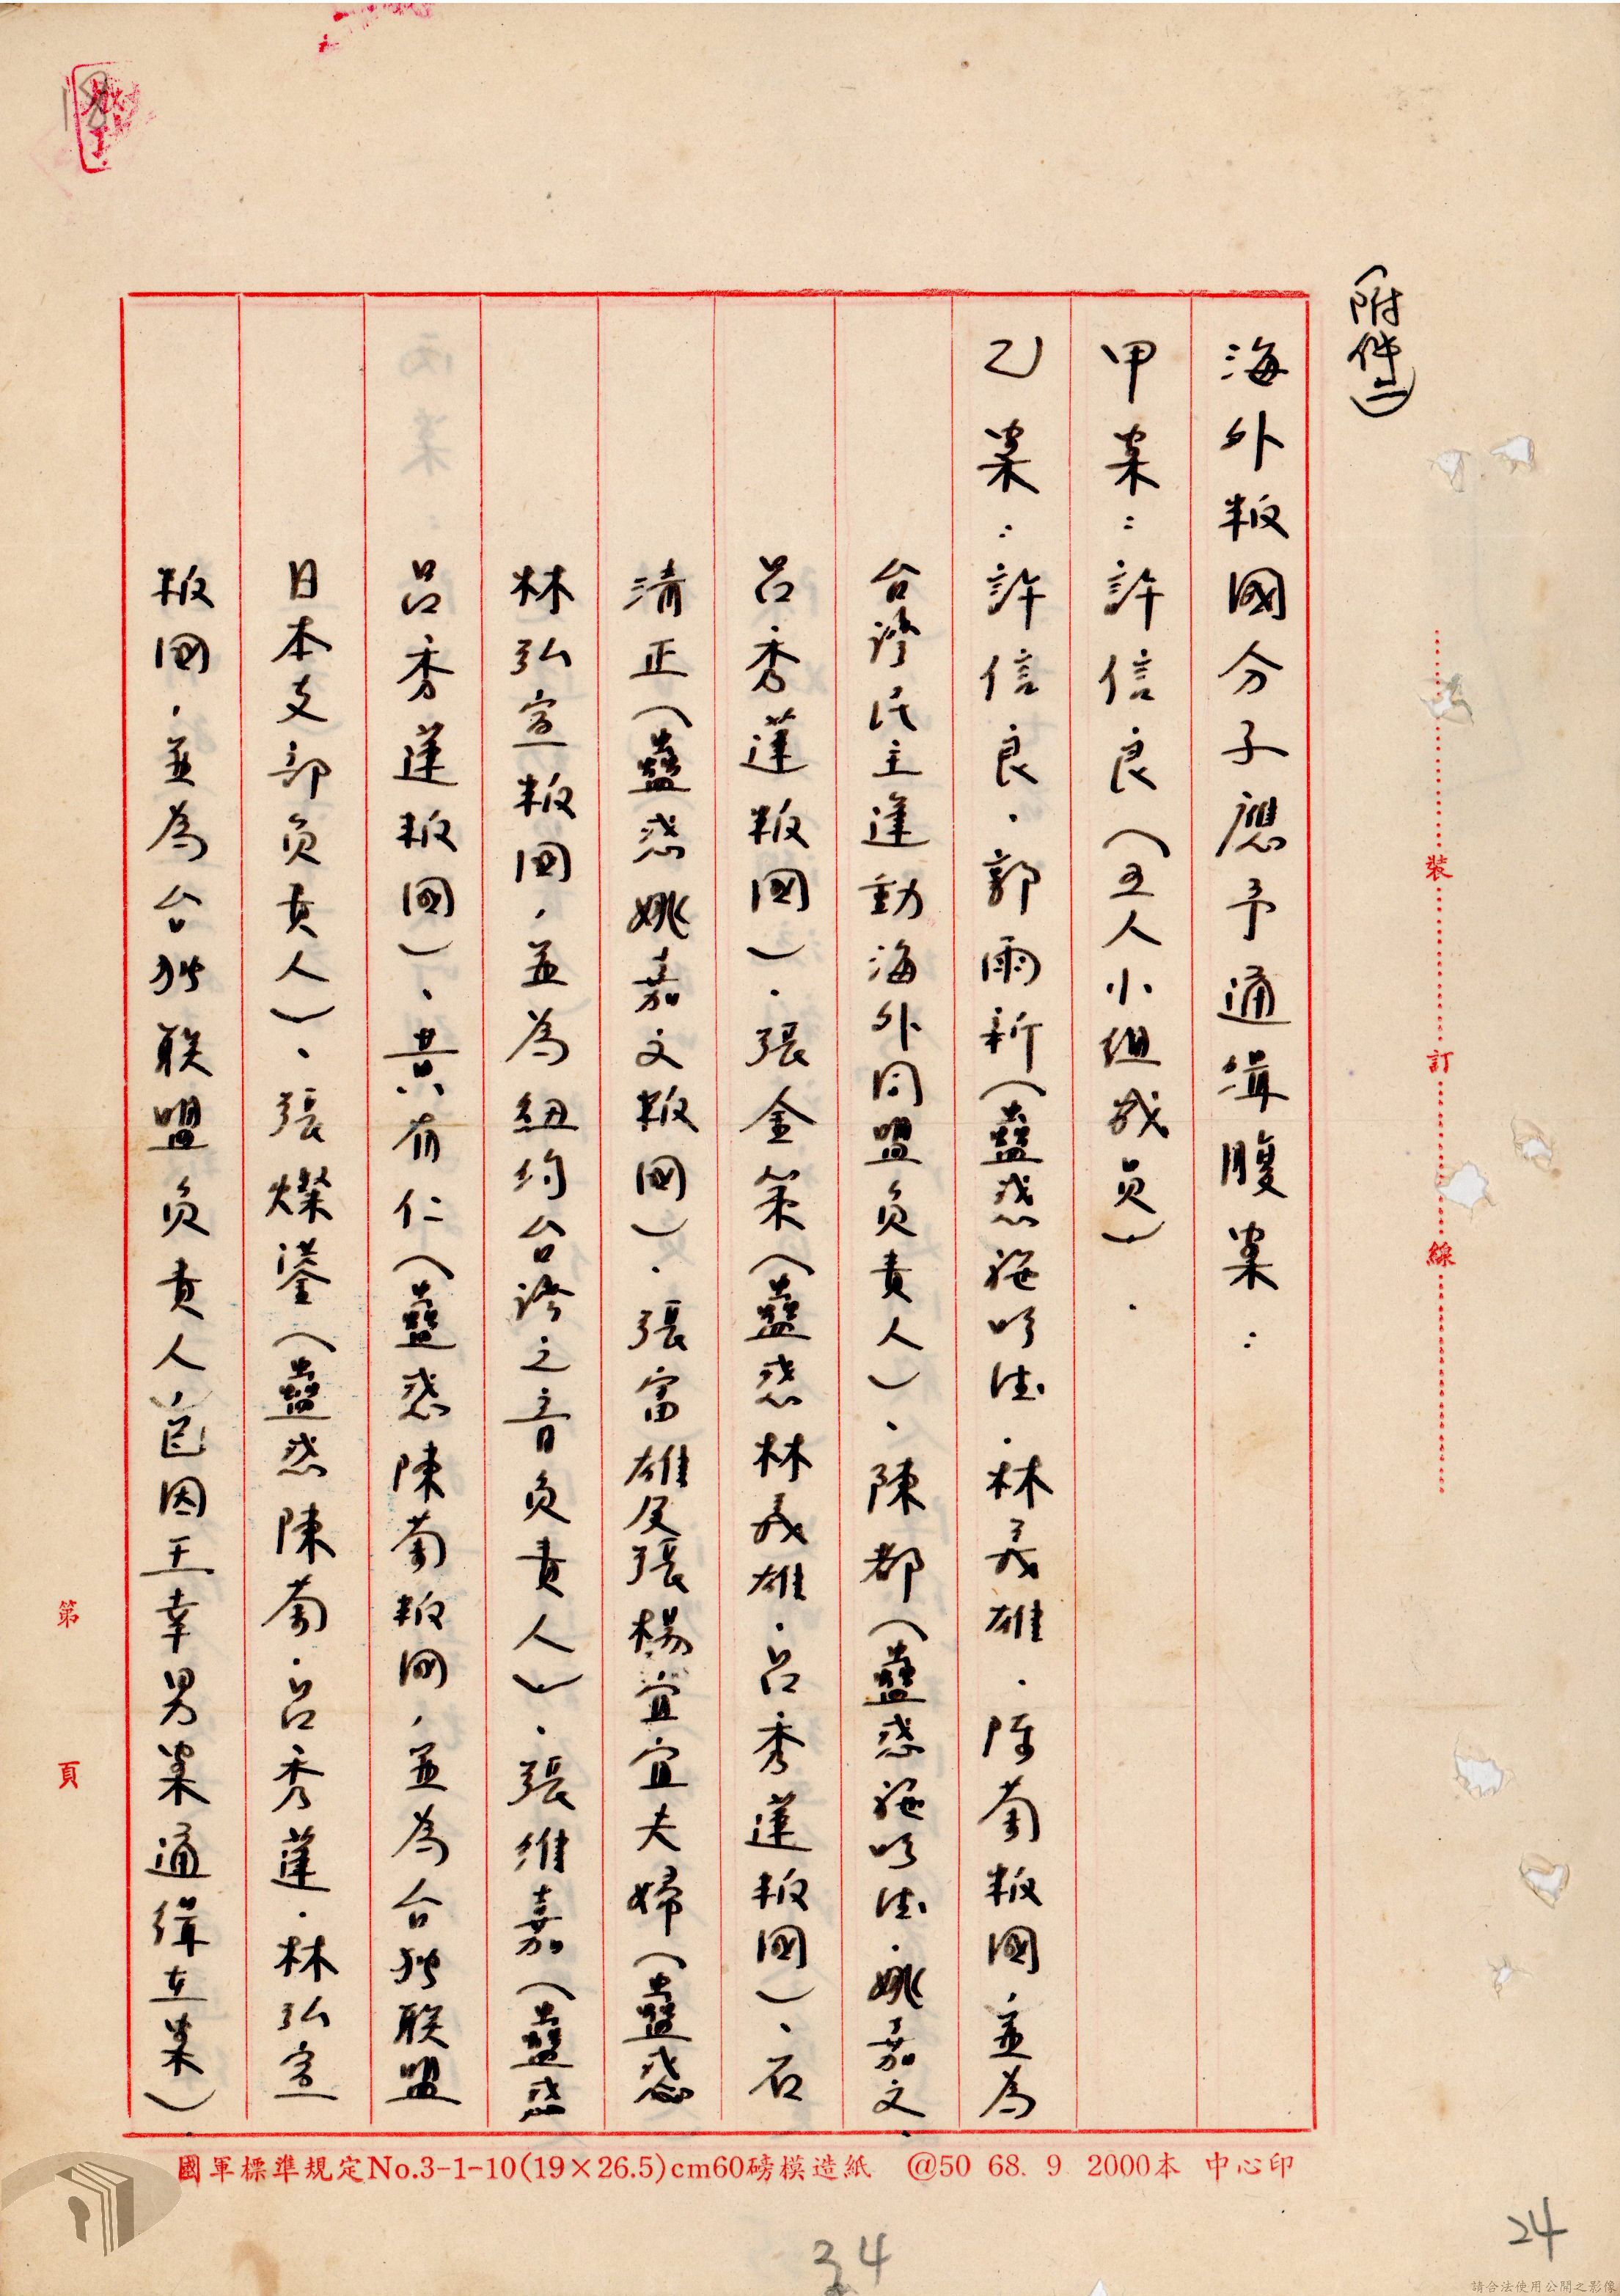 (附件二)
海外叛國分子應予通緝腹案：
甲案：許信良(五人小組成員)．
乙案：許信良．郭雨新(蠱惑施明德．林義雄．陳菊叛國，並為
台灣民主運動海外同盟负責人)、陳都(蠱惑施明德．姚嘉文．
呂秀蓮叛國)．張金策(蠱惑林義雄．呂秀蓮叛國)、石
清正(蠱惑姚嘉文叛國)．張富雄及張楊宜宜夫婦(蠱惑
林弘宣叛國，並為紐約台灣之音负責人)、張維嘉(蠱惑
呂秀蓮叛國)、黄有仁(蠱惑陳菊叛国，並為台独联盟
日本支部负責人)、張燦鍙(蠱惑陳菊．呂秀蓮．林弘宣
叛国，並為台独联盟负責人，已因王幸男案通缉在案)．
裝
訂
線
第
頁
國軍標準規定No.3-1-10(19×26.5)cm60磅模造紙　@50 68. 9 2000本 中心印
34
24
請合法使用公開之影像